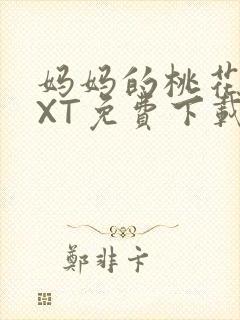 妈妈的桃花
XT免费下载
鄭非卞